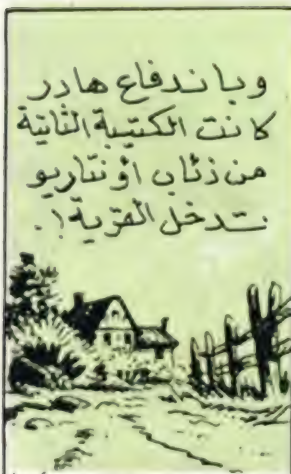 وباندفاع هادر
كانت الكتيبة الثانية
من ذئاب أونتاريو
تدخل القرية !.